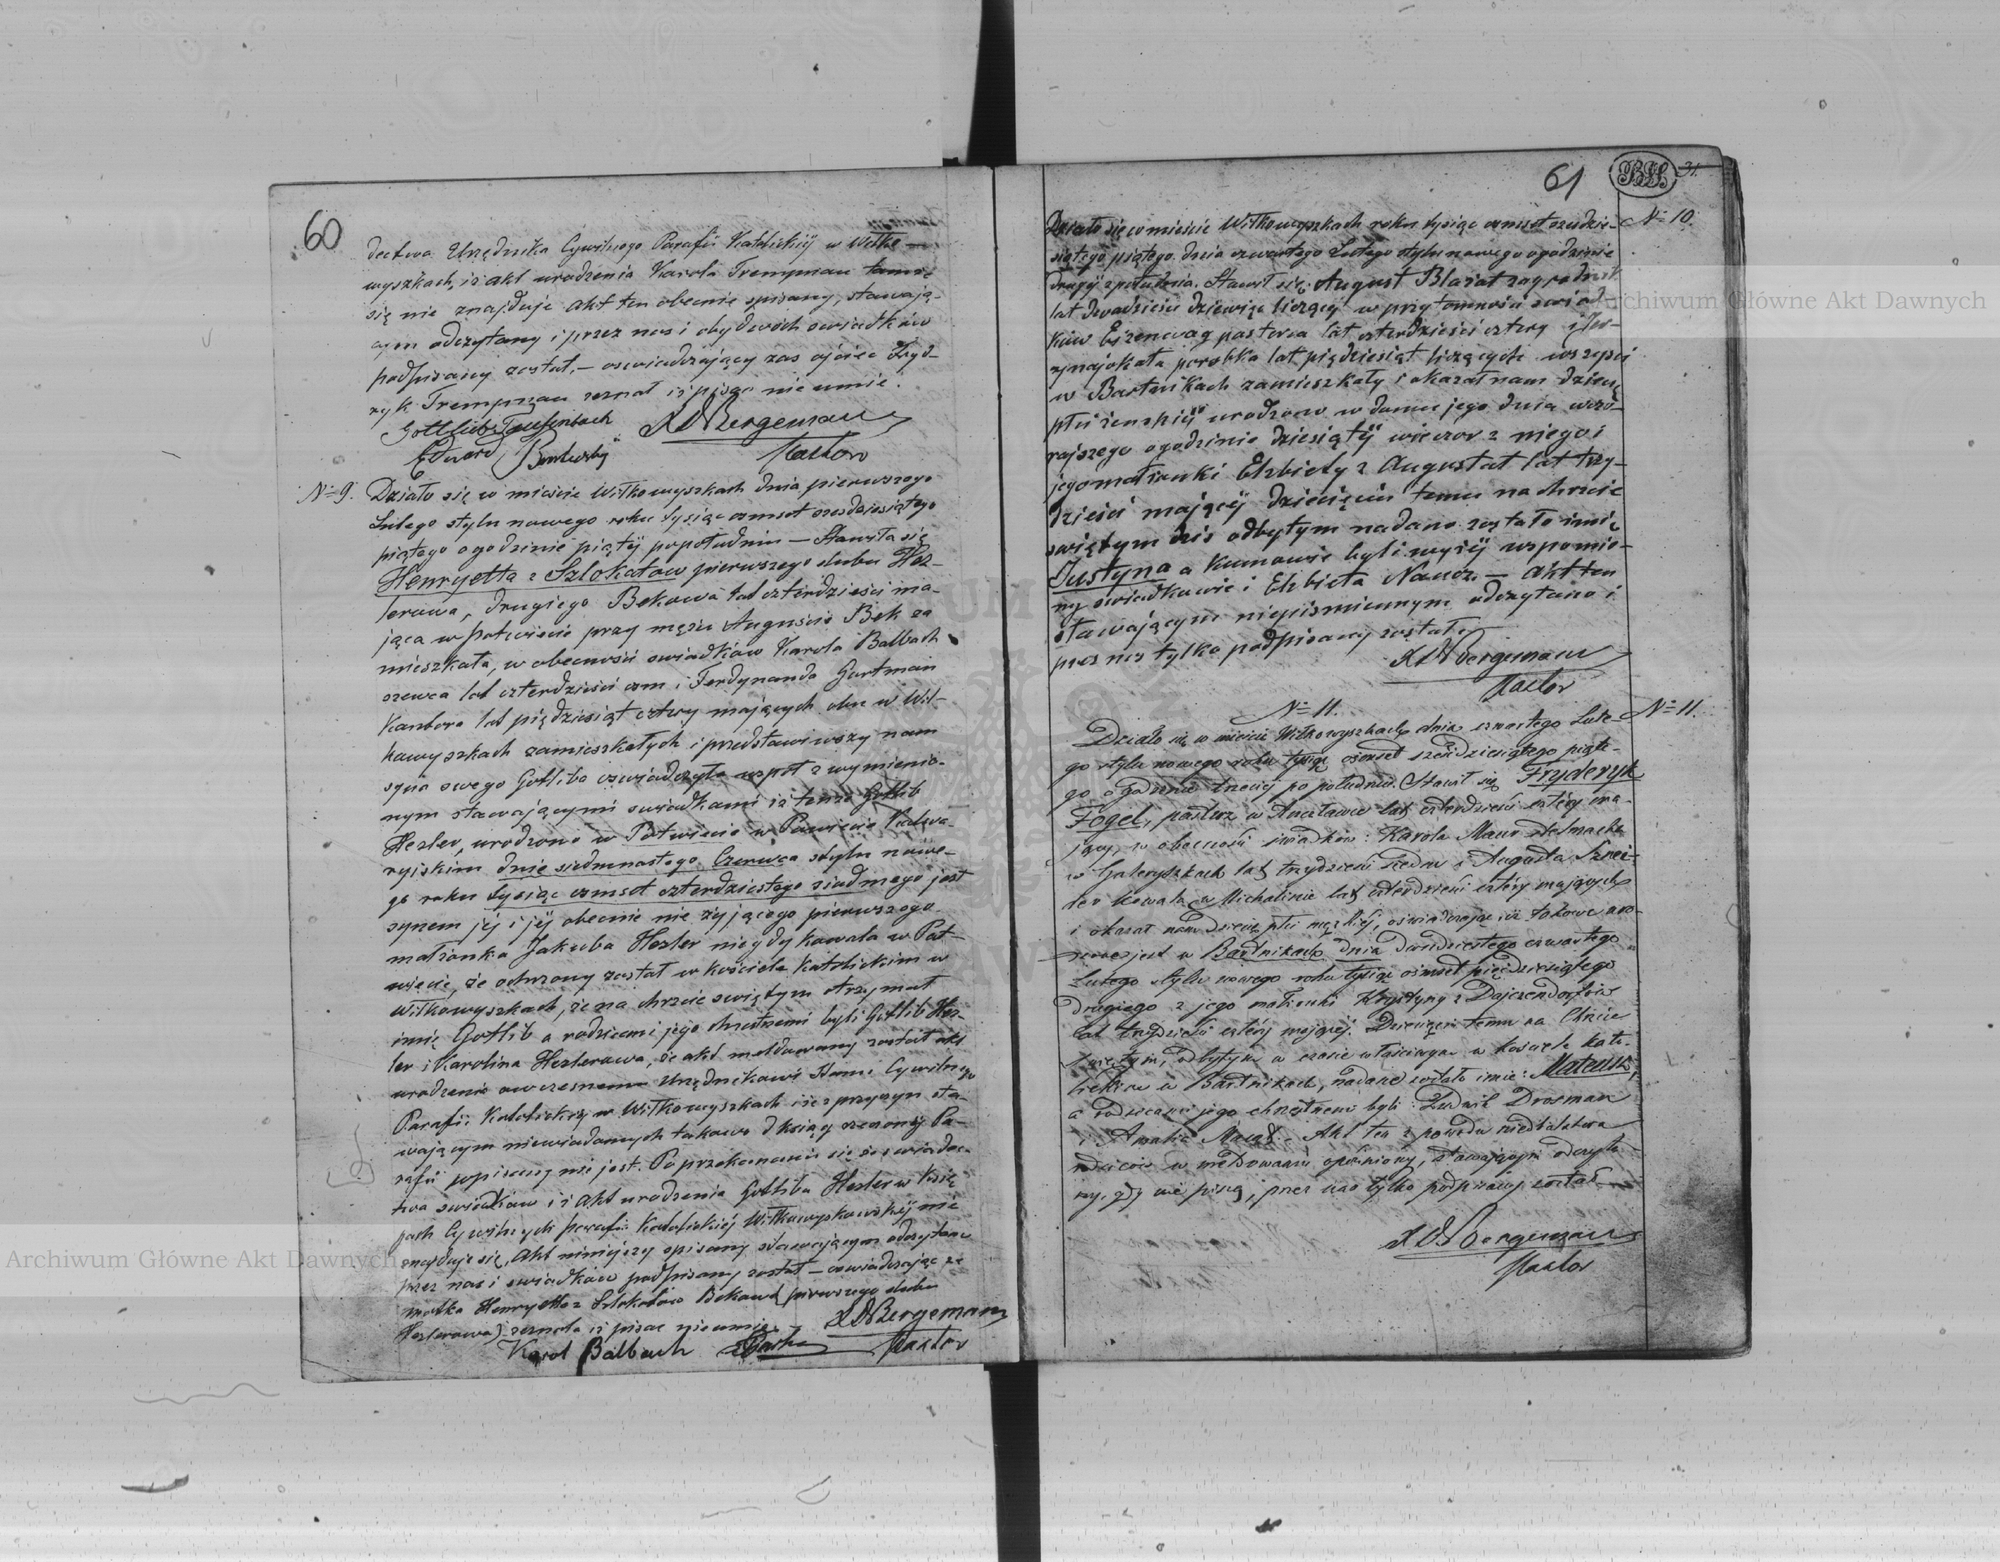 60
dectwa Urzędnika Cywilnego Parafii Katolickiĕj w Wiłko-
wyszkach, iż akt urodzenia Karola Trempnau tamże
się nie znajduje. Akt ten obecnie spisany, stawają-
cym odczytany i przez nas i obydwóch swiadków
podpisany został, – oswiadczający zas ojciec Fryd-
ryk Trempnau zeznał iż pisac nie umie.
Gottlieb Taufenbach XWBergemann
Eduard Pastor
No 9. Działo się w miescie Wiłkowyszkach dnia pierwszego
Lutego stylu nowego roku tysiąc osmset szesdziesiątego
piątego o godzinie piątĕj popołudniu – Stawiła się
Henryetta z Szlokatow pierwszego slubu Hez-
lerowa, drugiego Bekowa lat czterdzieści ma-
jąca w Potwiecie przy mężu Auguscie Bek za
mieszkała, w obecnosci swiadków Karola Balbach
szewca lat czterdziesci osm i Ferdynanda Gurtman
Kantora lat pięcdziesiąt cztery mających obu w Wił-
kowyszkach zamieszkałych i przedstawiwszy nam
syna swego Gotliba oswiadczyła wspoł z wymienio-
nym stawającymi swiadkami iż tenże Gotlib
Hezler, urodzono w Potwiecie w Powiecie Kalwa-
ryjskim dnia siedmnastego Czerwca stylu nowe-
go roku tysiąc osmset czterdziestego siodmego jest
synem jĕj i jĕj obecnie nie żyjącego pierwszego
małżonka Jakuba Hezler niegdy kowala w Pot-
wiecie, że ochrzony został w kościele Katolickim w
Wiłkowyszkach, że na chrzcie swiętym otrzymał
imię Gotlib a rodzicami jego chrzestnemi byli Gotlib Hez-
ler i Karolina Hezlerowa, że akt meldowany został akt
urodzenia owczesnemu Urzędnikowi Stanu Cywilnego
Parafii Katolickiĕj w Wiłkowyszkach i że z przyczyn sta-
wającym niewiadomych takowy do ksiąg rzeczonĕj Pa-
rafii wpisany nie jest. Po przekonaniu się ze swiadec-
twa swiadków iż akt urodzenia Gotliba Hezler w Księ
gach Cywilnych parafii Katolickiĕj Wiłkowyskowskiĕj nie
znajduje się, Akt niniejszy spisany stawającym odczytany
przez nas i swiadków podpisany został – oswiadczająca za
matka Henryetta z Szlokatow Bekowa (pierwszego slubu
Hezlerowa) zeznała iż pisac nieumie. XWBergemann
Karol Balbach Pastor
61
31.
Działo się w miescie Wiłkowyszkach roku tysiąc osmset szesdzie- No 10.
siątego piątego dnia czwartego Lutego stylu nowego o godzinie
drugiĕj z południa. Stawił się August Blasat zagrodnik
lat dwadziescia dziewięc liczący w przytomnosci swiad
ków Eizenwag pasterza lat czterdziesci cztery i
parobka lat pięcdziesiąt liczących wszyscy
w Bartnikach zamieszkały i okazał nam dziecię
płci żenskiĕj urodzone w domu jego dnia wczo-
rajszego o godzinie dziesiątĕj wieczor z niego i
jego małżonki Elzbiety z Augustat lat trzy-
dziesci mającĕj dziecięciu temu na chrzcie
swiętym dzis odbytym nadano zostało imię
Justyna a kumowie byli wyżĕj wspomnio-
ny swiadkowie i Elzbieta Naucz. – Akt ten
stawającym niepismiennym odczytano i
przez nas tylko podpisany został.
XWBergemann
Pastor
No 11. No 11.
Działo się w mieście Wiłkowyszkach dnia czwartego Lute-
go stylu nowego roku tysiąc ośmset sześdziesiątego piąte-
go o godzinie trzeciĕj po południu. Stawił się Fryderyk
Fogel, pasterz w lat czterdzieści cztéry ma-
jący w obecności świadków: Karola Maur stelmacha
w Galeryszkach lat trzydzieści siedm i Augusta Sznei-
der kowala w Michalinie lat czterdzieści cztéry mających
i okazał nam dziecię płci męzkiéj, oświadczając iż takowe uro-
dzone jest w Bartnikach dnia dwudziestego czwartego
Lutego stylu nowego roku tysiąc ośmset pięćdziesiątego
drugiego z jego małżonki Krystyny z Dajczendorfów
lat trzydzieści cztéry mającéj. Dziecięciu temu na Chrzcie
Świętym, odbytym w czasie właściwym w kosciele kato-
lickim w Bartnikach, nadane zostało imie: Mateusz,
a rodzicami jego chrzestnemi byli: Ludwik Drosman
i Amalia Maczt. Akt ten z powodu niedbalstwa
rodziców w meldowaniu opóźniony, stawającym odczyta-
ny, gdy nie piszą, przez nas tylko podpisany został.
XWBergemann
Pastor
Archiwum Główne Akt Dawnych
Archiwum Główne Akt Dawnych